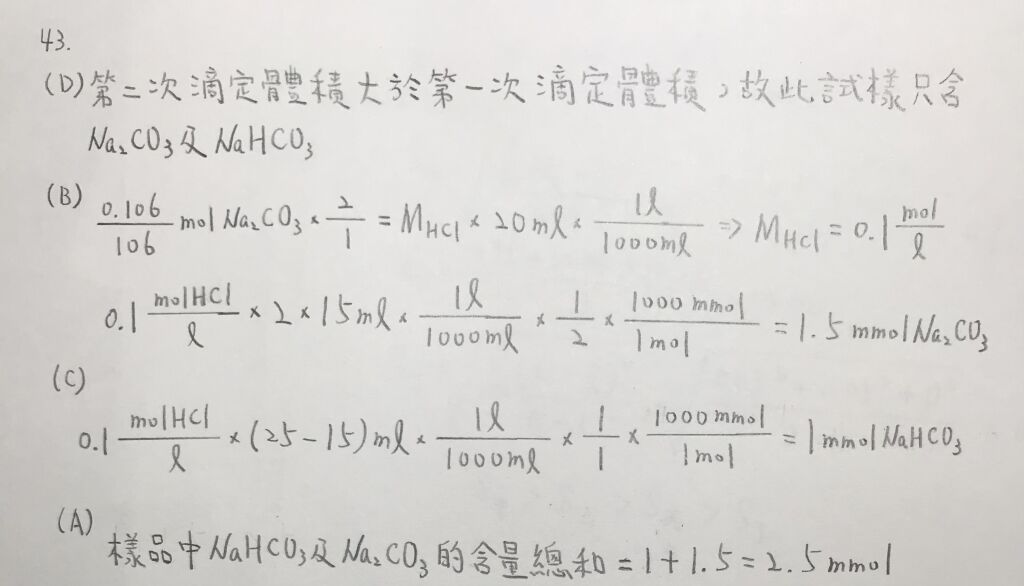 43.
(D) 第二次滴定體積大於第一次滴定體積，故此試樣只含
Na₂CO₃及NaHCO₃
(B) 0.106/106 mol Na₂CO₃ × 2/1 = M_HCl × 20ml × 1l/1000ml ⇒ M_HCl = 0.1 mol/l
0.1 molHCl/l × 2 × 15ml × 1l/1000ml × 1/2 × 1000 mmol/1mol = 1.5 mmol Na₂CO₃
(C)
0.1 molHCl/l × (25-15)ml × 1l/1000ml × 1/1 × 1000 mmol/1mol = 1 mmol NaHCO₃
(A) 樣品中NaHCO₃及Na₂CO₃的含量總和=1+1.5=2.5mmol